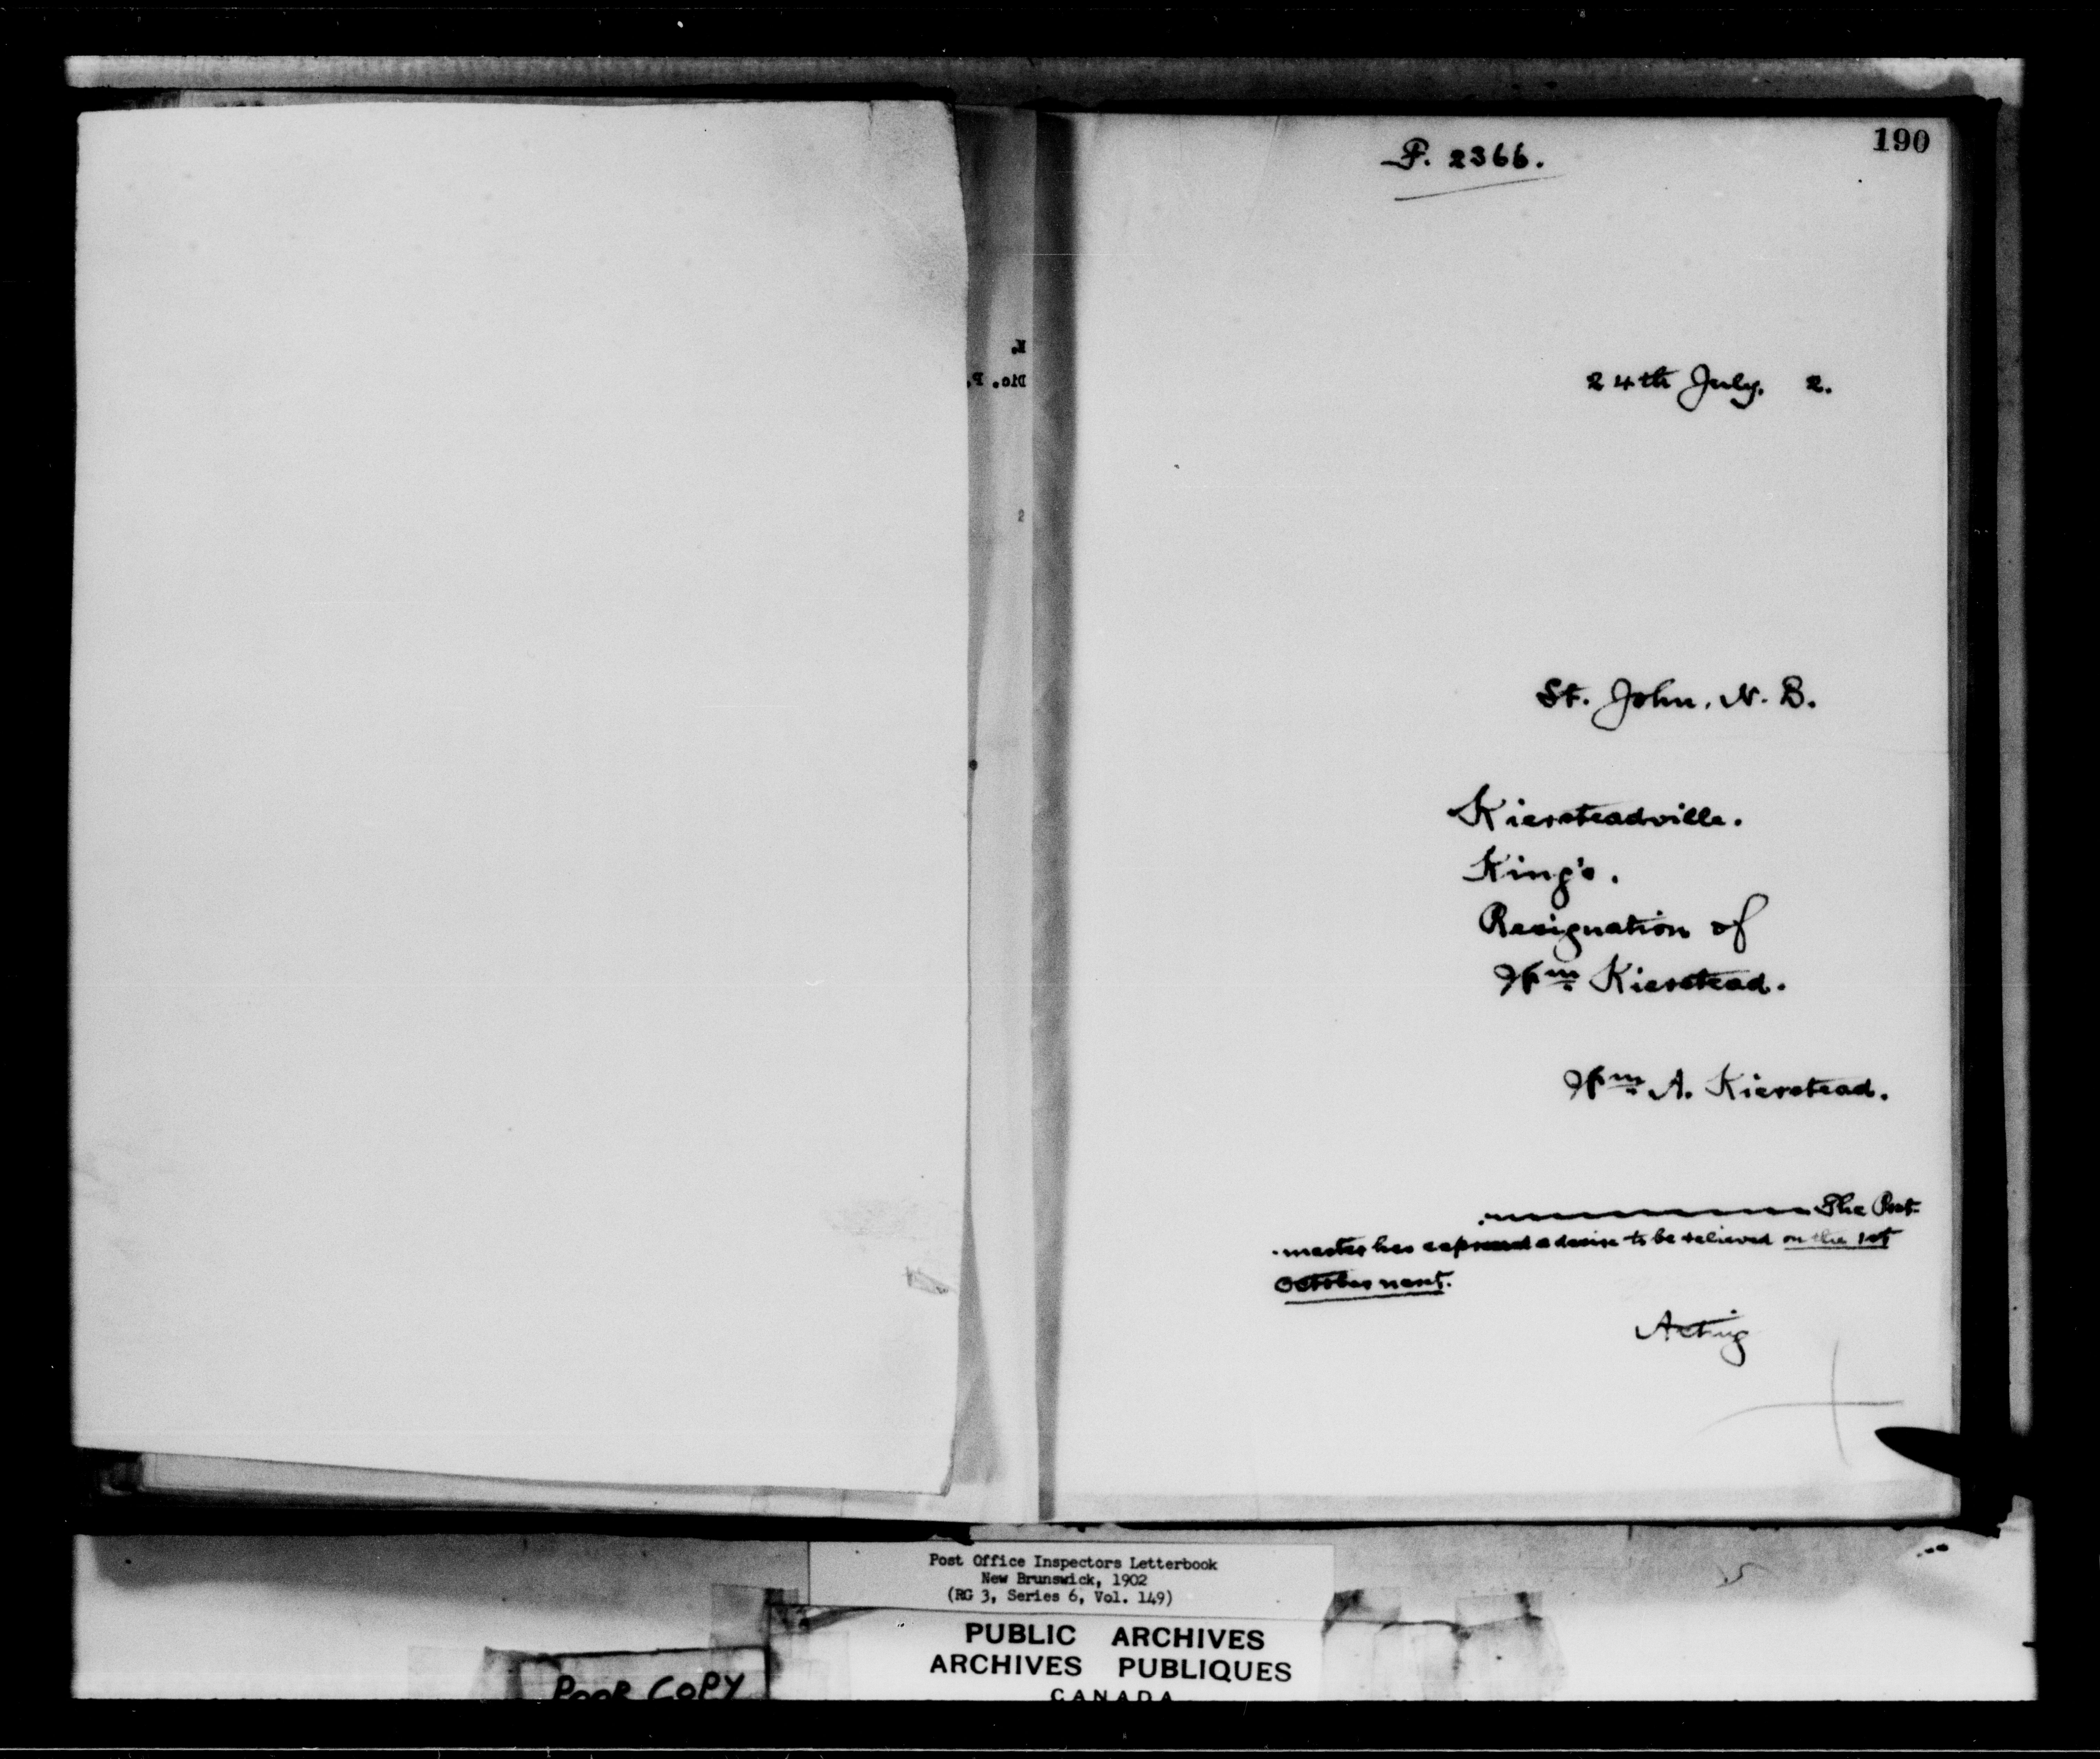 190
P. 2366.
24th July. 2.
St. John, N. B.
Kiersteadville.
King's.
Resignation of
Wm Kierstead.
Wm A. Kierstead.
The Post-
-master has expressed a desire to be relieved on the 1st
October next.
Acting
K.
Dio. P.
2
Post Office Inspectors Letterbook
New Brunswick, 1902
(RG 3, Series 6, Vol. 149)
PUBLIC ARCHIVES
ARCHIVES PUBLIQUES
CANADA
POOR COPY